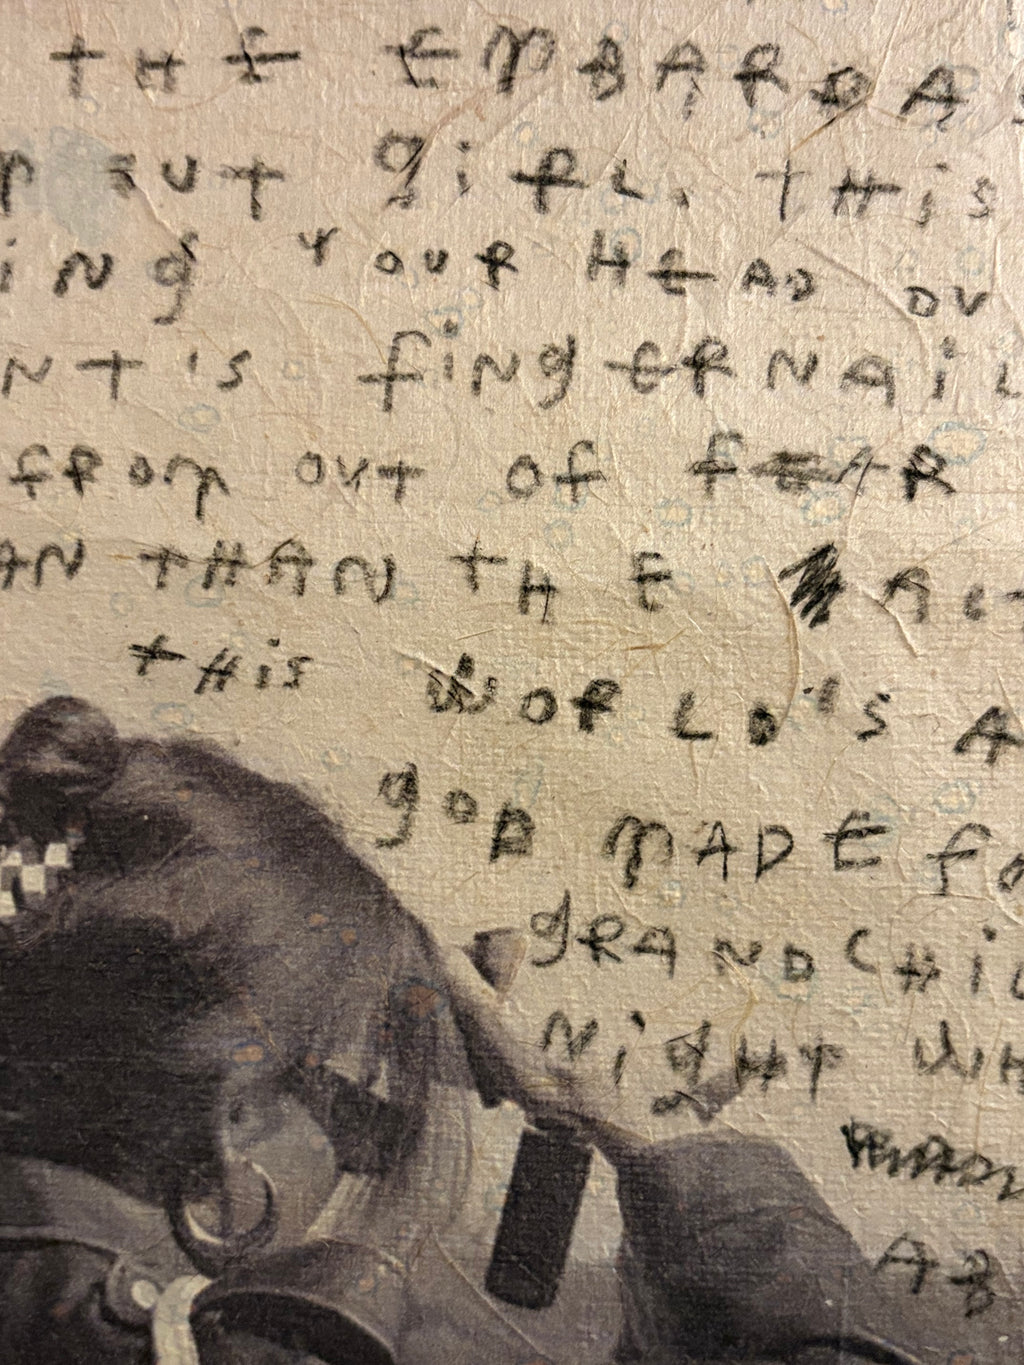 THE EMBARDAS
OUT giRL. THiS
iNg YOUR HEAD OV
NT'S fiNgERNAiL
fROM OUT Of f AR
AN THAN THE ACT
THiS WORLD'S A
gOD MADE fO
gRANDCHiL
NigHT WH
AB